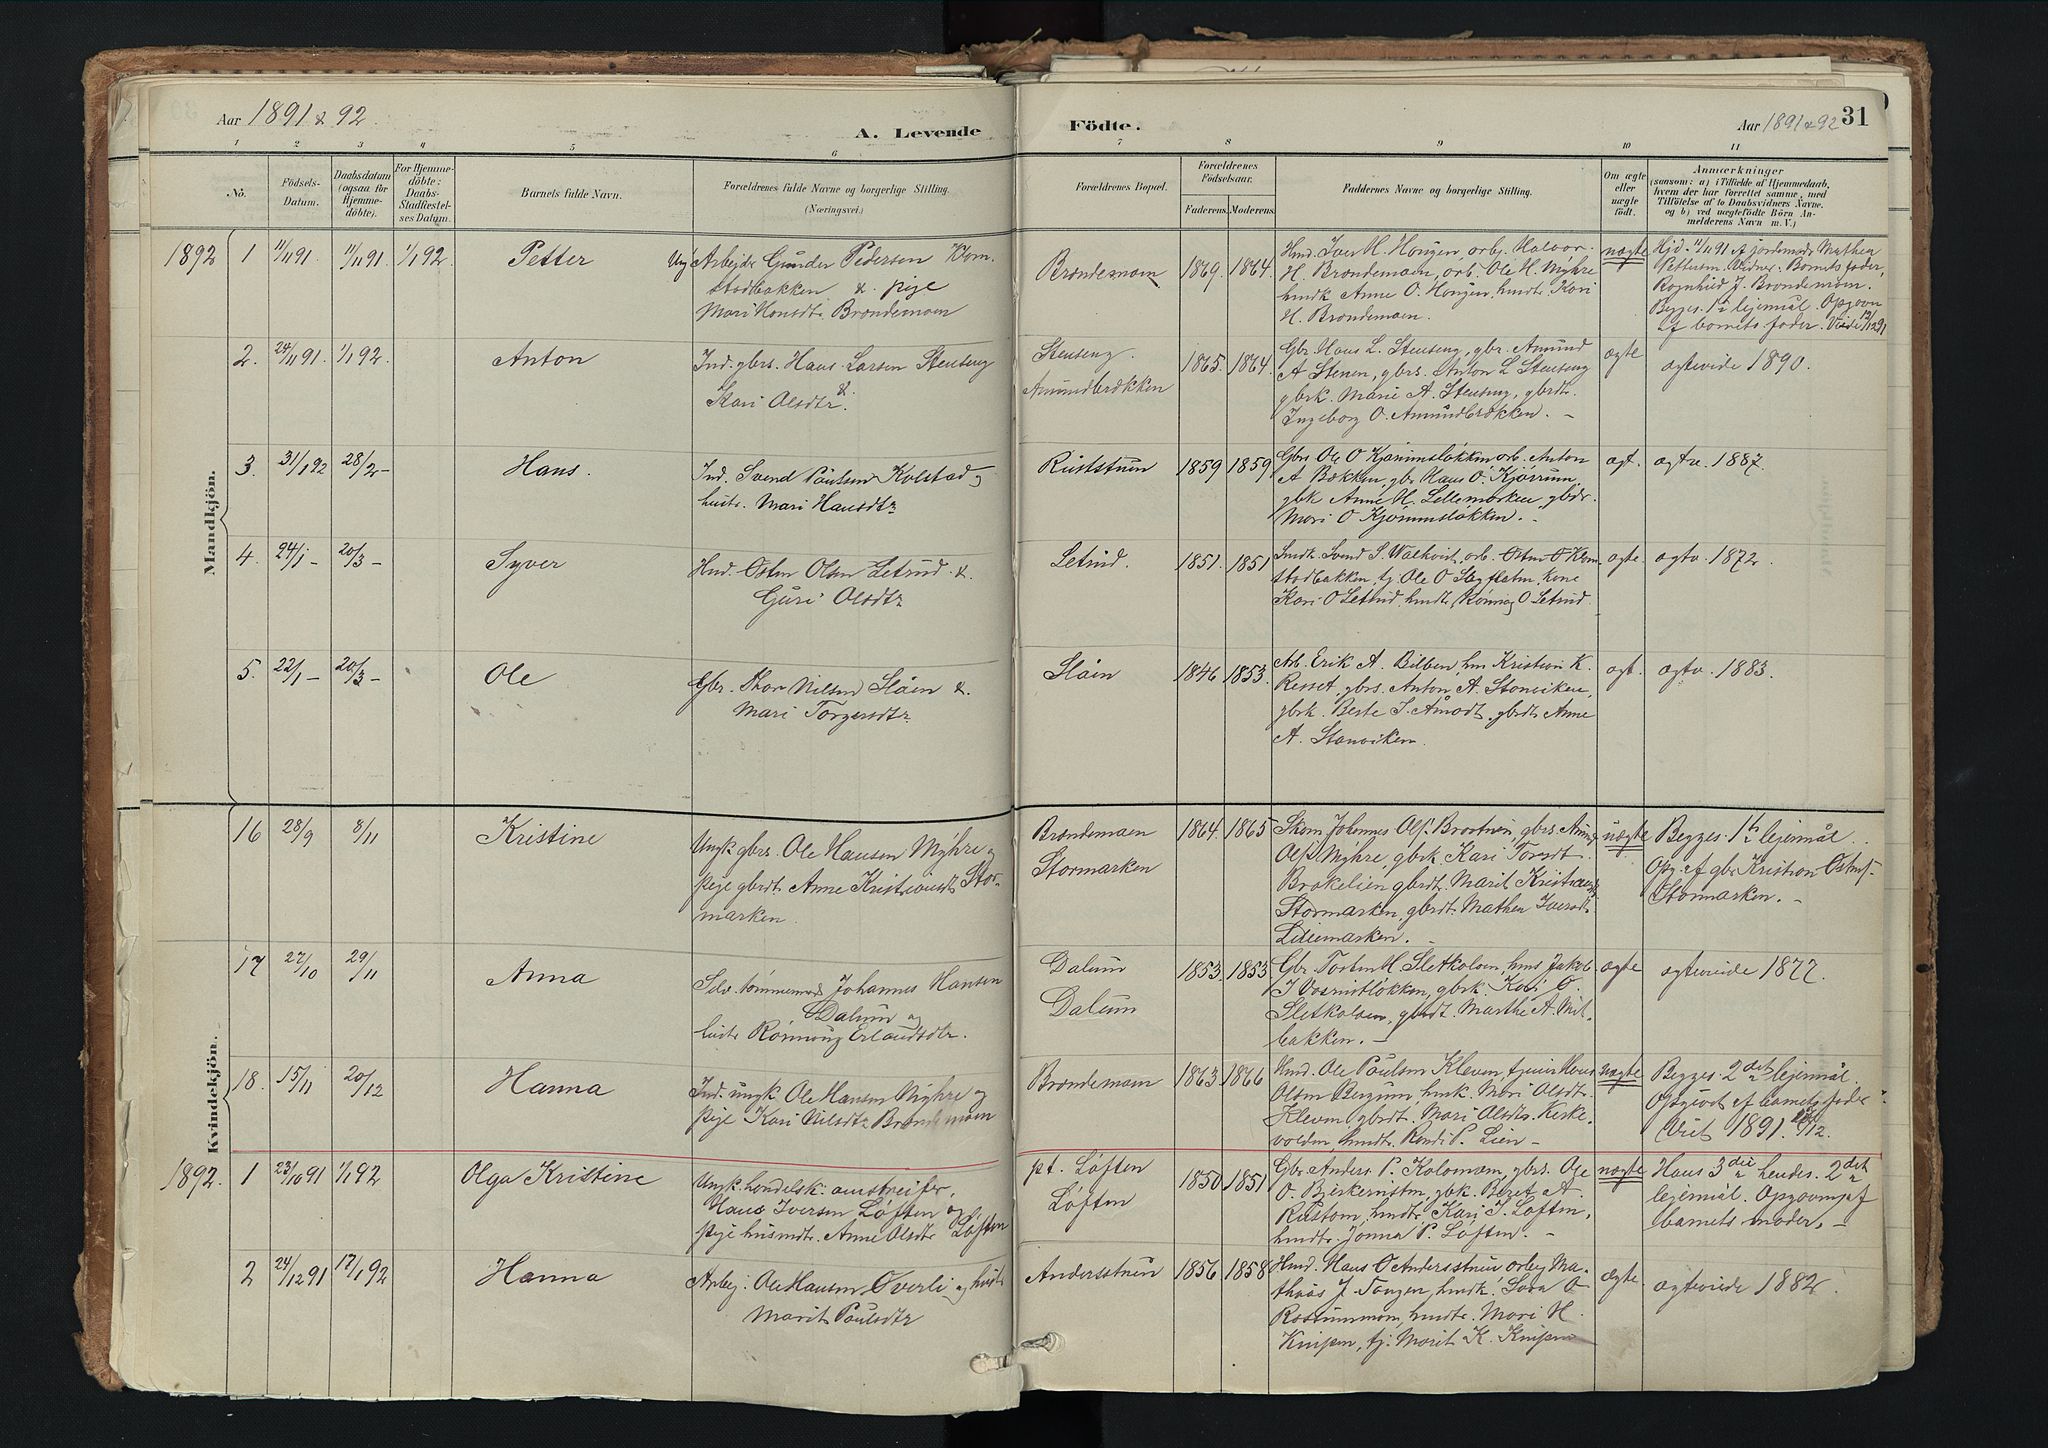 Aar 1891 & 92.
A. Levende
Födte.
Aar 1891 & 92
31
1 2 3 4 5 6 7 8 9 10 11
No.
Födsels-
Datum.
Daabsdatum
(ogsaa for
Hjemme-
döbte).
For Hjemme-
döbte:
Daabs-
Stadfæstel-
ses Datum.
Barnets fulde Navn.
Forældrenes fulde Navne og borgerlige Stilling.
(Næringsvei.)
Forældrenes Bopæl.
Forældrenes
Födselsaar.
Faderens. Moderens.
Faddernes Navne og borgerlige Stilling.
Om ægte
eller
uægte
födt.
Anmærkninger
(saasom: a) i Tilfælde af Hjemmedaab,
hvem der har forrettet samme, med
Tilföielse af to Daabsvidners Navne.
og b) ved uægtefödte Börn An-
melderens Navn m. V.)
Mandkjön.
1892 1 11/11 91. 11/11 91 1/1 92. Petter
Ug Arbejdr Gunder Pedersen Klom-
stadbakken & pige
Mari Hansdtr. Brondemoen
Brondemoen 1869 1864.
Hmd. Iver H. Haugen, arb. Halvor
H. Brondemoen, arb. Ole H. Myhre
hmdk Anne O. Haugen, hmdtr. Kari
H. Brondemoen.
uægte
Hjd. 11/11 91 af jordemoder Mathea
Petters. Vidner: Barnets fader,
Ragnhild J. Brondemoen.
Begges 1ste lejermål. Opgiven
af barnets fader.
2. 24/11 91. 1/1 92. Anton
Ind. gbrs. Hans Larsen Stenseng
&
Kari Olsdtr.
Stenseng.
Amundbrækken
1865. 1864.
Gbr. Hans L. Stenseng, gbr. Amund
A Stenen, gbrs. Anton L Stenseng
gbrk. Marie A. Stenseng, gbrdtr.
Ingeborg O. Amundbrækken. –
ægte
ægteviede 1890.
3. 31/1 92 28/2 – Hans.
Ind. Svend Paulsen Kolstad og
hustr. Mari Hansdtr
Ruststuen 1859 1859
Gbrs Ole O Kjæmsløkken arb. Anton
A Bakken, gbr Hans O. Kjørum,
gbk Anne H. Lillemarken, gbdr.
Mari O Kjømmsløkken. –
ægt. ægtv. 1887.
4. 24/1 – 20/3 – Syver
Hmd. Østen Olsen Letrud &
Guri Olsdtr
Letrud. 1851. 1851
Smdk. Svend S. Walkvist, arb. Østen O Klom-
stadbakken, tj. Ole O Slyflatm, kone
Kari O Letrud, hmdtr. Rønnaug O Letrud.
ægte. ægtv. 1872.
5. 22/1 – 20/3 – Ole
Gbr. Thor Nilsen Slåen &
Mari Torgersdtr
Slåen 1846 1853.
Arb. Erik A. Bilben, hm Kristian K.
Resset, gbrs. Anton A. Stenviken,
gbrk. Beste J. Åmodt, gbrdtr Anne
A. Stenviken.
ægt. ægtv. 1883.
Kvindekjön.
16 28/9 8/11 Kristine
Ungk gbrs. Ole Hansen Myhre og
pige gbrdtr Anne Kristiansdtr Stor-
marken.
Brondemoen
Stormarken
1864. 1865
Skom. Johannes Ols. Braatuen, gbrs. Amund
Ols. Myhre, gbrk Kari Torsdtr.
Brokelien gbrdtr. Marit Kristiansdtr
Stormarken, gbrdtr. Mathea Iversdtr.
Lillemarken. –
uægte
Begges 1ste lejermål.
Opg. af gbr. Kristian Østens.
Stormarken. –
17 27/10 29/11 Anna
Selv. tømmermd Johannes Hansen
Dalum og
hustr Rønnaug Erlandsdtr.
Dalum
Dalum
1853. 1853
Gbr. Torsten H. Sletkolsen, hms Jakob
J Vasrustløkken, gbrk. Kari O.
Sletkolsen, gbrdt. Marthe A. Mit-
bakken. –
ægte ægteviede 1877.
18. 15/11 20/12 Hanna
Ind. ungk. Ole Hansen Myhre og
pige Kari Nilsdtr Brondemoen
Brondemoen 1863. 1866
Hmd. Ole Paulsen Kleven, tjener Hans
Olsen Bergum, hmk. Mari Olsdtr.
Kleven, gbrdt. Mari Olsdtr. Kirke-
volden, hmdtr. Randi P. Lien –
uægte
Begges 2det lejermål.
Opgivet af barnets fader
Viet 1891
1892. 1 23/10 91 1/1 92 Olga Kristine
Ungk. handelsk: omstreifer,
Hans Iversen Løften og
pige husmdtr. Anne Olsdtr Løften
pt. Løften
Løften
1850 1851
Gbr. Anders P. Kolomoen, gbrs. Ole
O. Bjerkenisten, gbk. Beret A.
Rustom, hmdtr. Kari I. Løften,
hmdtr. Jonna P. Løften. –
uægte
Hans 3die hendes 2det
lejermål. Opgivens af
barnets moder. –
2 24/12 91 17/1 92 Hanna
Arbej. Ole Hansen Overli og hustr
Marit Paulsdtr
Andersstuen 1856 1858
Hmd. Hans O Andersstuen arbej. Ma-
thias J. Tangen, hmdk. Sara O
Rostummoen, hmdtr. Mari H.
Knipen, tj. Marit K. Knipen
ægte. ægteviede 1882.